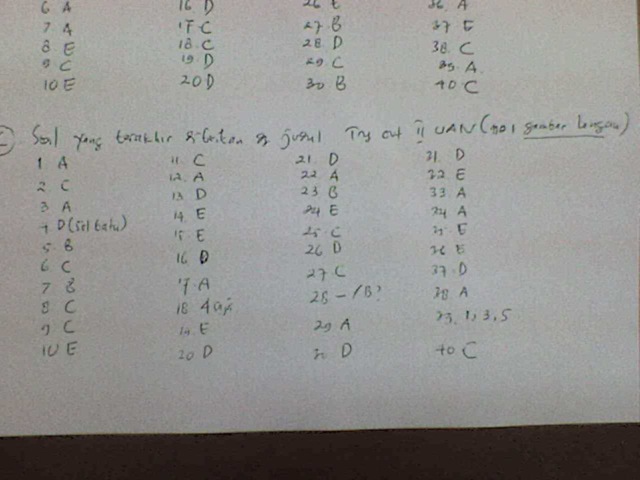 6 A 16 D 26 E 36 A
7 A 17 C 27 B 37 E
8 E 18 C 28 D 38 C
9 C 19 D 29 C 39. A
10 E 20 D 30 B 40 C
Soal yang terakhir judul Try out II UAN (no 1 gambar
1 A 11 C 21 D 31. D
2 C 12. A 22 A 32 E
3 A 13 D 23 B 33 A
4 D 14 E 24 E 34 A
5 B 15 E 25 C 35 E
6 C 16 D 26 D 36 E
7 B 17 A 27 C 37 D
8 C 18 A aja 28 - / B? 38 A
9 C 19. E 29 A 39. 1, 3, 5
10 E 20 D 30 D 40 C